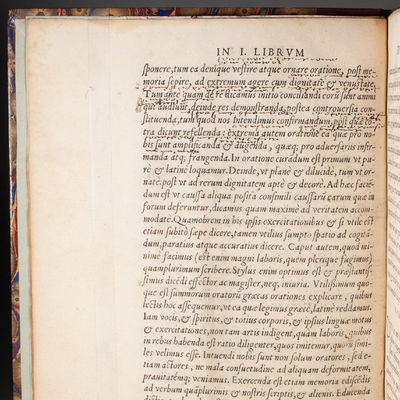 IN I. LIBRVM
sponere, tum ea deniq́ue vestire atque ornare oratione, post me-
moria sepire, ad extremum agere cum dignitate & venustate.
Tum ante quàm de re dicamus initio conciliandi eorū sunt animi
qui audiunt, deinde res demonstranda, postea controuersia con-
stituenda, tum quod nos intendimus confirmandum, post quæ cō-
tra dicunt refellenda: extrema autem oratione ea quæ pro no-
bis sunt amplificanda & augenda, quæq; pro aduersariis infir-
manda atq; frangenda. In oratione curādum est primum vt pu-
rè & latinè loquamur. Deinde, vt planè & dilucidè, tum vt or-
natè: post vt ad rerum dignitatem aptè & decorè. Ad hæc faciē-
dum est vt caussa aliqua posita consimili caussarū earum quæ in
forum deferuntur, dicamus quàm maximè ad veritatem accom-
modatè. Quamobrem in his ipsis exercitationibus & si vtile est
etiam subitò sæpe dicere, tamen vtilius sumpto spatio ad cogitā-
dum, paratius atque accuratius dicere. Caput autem, quod mi-
nimè facimus (est enim magni laboris, quem plerique fugimus)
quamplurimum scribere. Stylus enim optimus est & præstantis-
simus dicēdi effector ac magister, neq; iniuria. Vtilissimum quo-
que est summorum oratorū græcas orationes explicare, quibus
lectis hoc assequemur, vt ea quæ legimus græcè, latinè reddamus.
Iam vocis, & spiritus, & totius corporis, & ipsius linguæ motus
& exercitationes, non tam artis indigent, quàm laboris, quibus
in rebus habenda est ratio diligenter, quos imitemur, quorū simi-
les velimus esse. Intuendi nobis sunt non solum oratores, sed e-
tiam actores, ne mala consuetudine ad aliquam deformitatem,
prauitatémq; veniamus. Exercenda est etiam memoria ediscēdis
ad verbum quàmplurimis & nostris scriptis, & alienis. Educenda